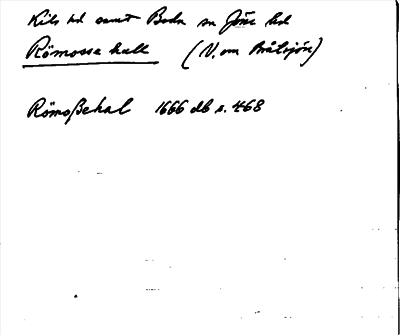 Kils sn samt Boda sn Jösse hd
Römossa kull (V. om Målsjön)
Römoßekul 1666 db s. 468